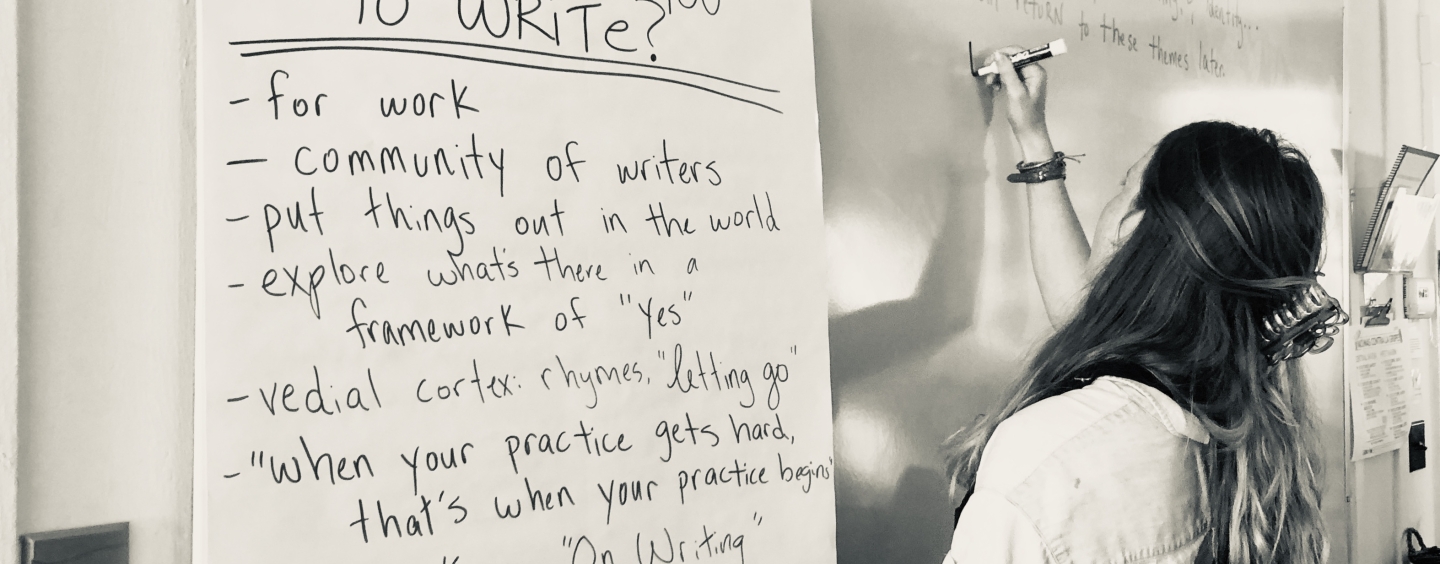 TO WRITe?
- for work
- community of writers
- put things out in the world
- explore what's there in a
framework of "Yes"
- vedial cortex: rhymes, "letting go"
- "when your practice gets hard,
that's when your practice begins"
"On Writing"
identity...
return to these themes later.